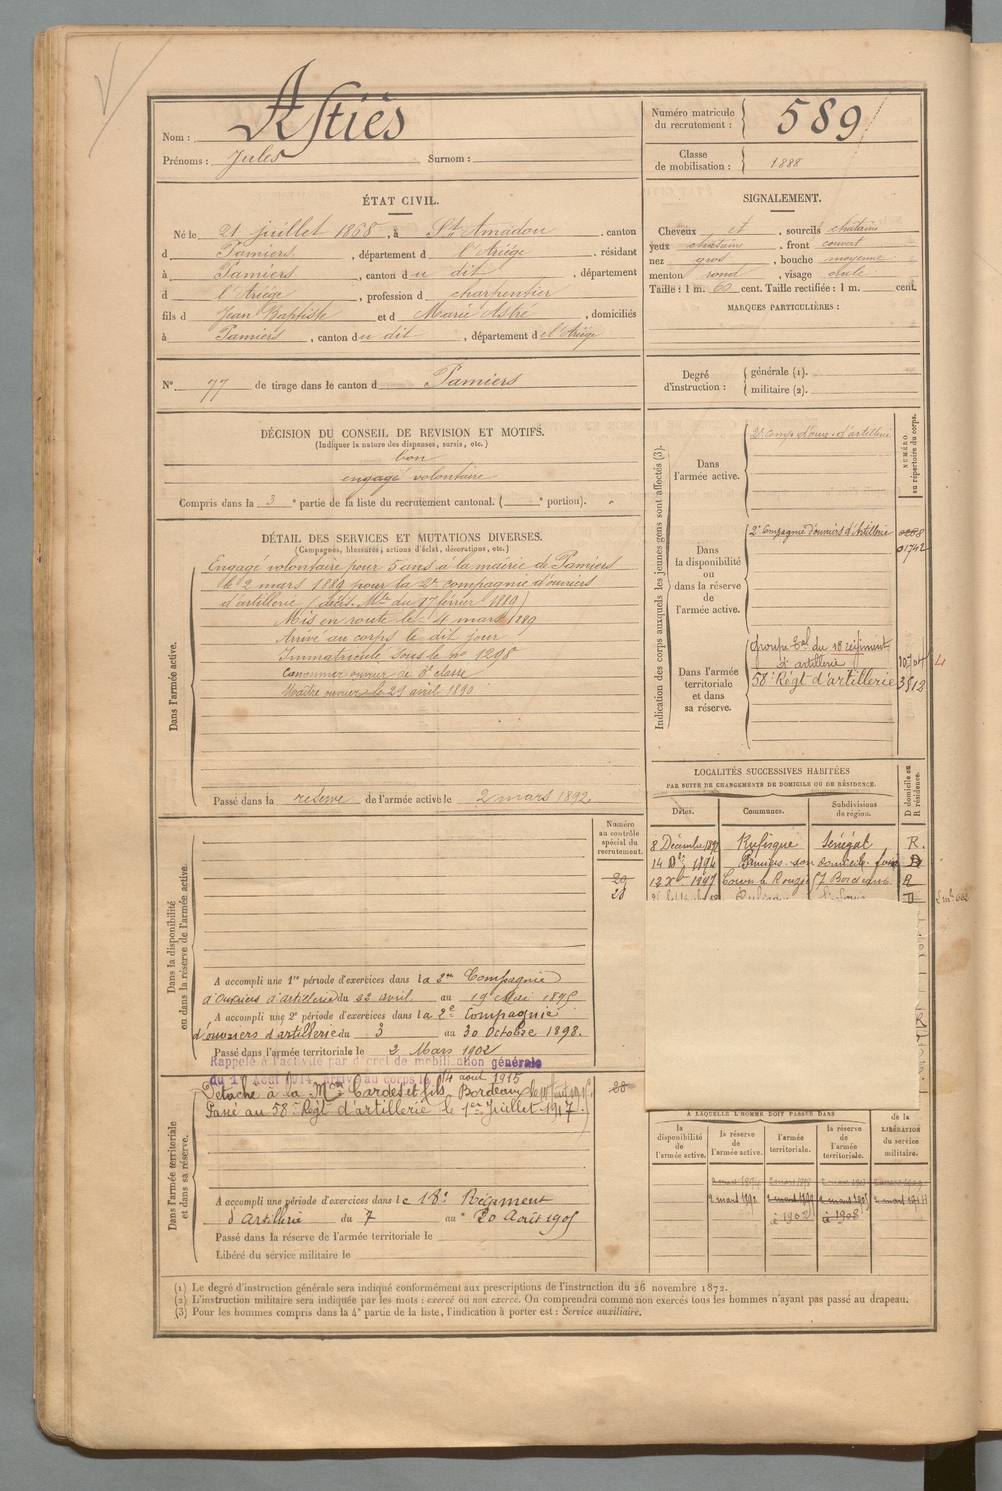 Nom : Astiès
Prénoms : Jules Surnom :
Numéro matricule du recrutement : 589
Classe de mobilisation : 1888
ÉTAT CIVIL.
Né le 21 juillet 1868, à St. Amadou, canton
d Pamiers, département d l'Ariège, résidant
à Pamiers, canton du dit, département
d l'Ariège, profession d charpentier
fils d Jean Baptiste et d Marie Astre, domiciliés
à Pamiers, canton du dit, département de l'Ariège
SIGNALEMENT.
Cheveux et, sourcils chatains
yeux chatains, front couvert
nez gros, bouche moyenne
menton rond, visage ovale
Taille : 1 m. 60 cent. Taille rectifiée : 1 m. cent.
MARQUES PARTICULIÈRES :
N° 77 de tirage dans le canton d Pamiers
Degré d'instruction : générale (1).
militaire (2).
DÉCISION DU CONSEIL DE REVISION ET MOTIFS.
(Indiquer la nature des dispenses, sursis, etc.)
bon
engagé volontaire
Compris dans la 3e partie de la liste du recrutement cantonal. ( e portion).
DÉTAIL DES SERVICES ET MUTATIONS DIVERSES.
(Campagnes, blessures, actions d'éclat, décorations, etc.)
Dans l'armée active.
Engagé volontaire pour 5 ans à la mairie de Pamiers
le 2 mars 1889 pour la 2e compagnie d'ouvriers
d'artillerie (décis. Mlle du 17 février 1889)
Mis en route le 4 mars 1889
Arrivé au corps le dit jour
Immatriculé sous le n° 1298
Canonnier ouvrier de 2e classe
Maître ouvrier le 21 avril 1890
Passé dans la réserve de l'armée active le 2 mars 1892.
Indication des corps auxquels les jeunes gens sont affectés (3).
NUMÉRO au répertoire du corps.
Dans l'armée active.
2e comp. d'ouv. d'artillerie
Dans la disponibilité ou dans la réserve de l'armée active.
2e Compagnie d'ouvriers d'Artillerie
01742
Dans l'armée territoriale et dans sa réserve.
Groupe Tal du 18 régiment
d'artillerie
58e Régt d'artillerie 3812
LOCALITÉS SUCCESSIVES HABITÉES
PAR SUITE DE CHANGEMENTS DE DOMICILE OU DE RÉSIDENCE.
D domicile ou R résidence.
Dates. Communes. Subdivisions de région.
Rufisque Sénégal R.
14 1894 Pamiers D
Bordeaux R
Numéro au contrôle spécial du recrutement.
20
28
Dans la disponibilité ou dans la réserve de l'armée active.
A accompli une 1re période d'exercices dans la 2me Compagnie
d'ouvriers d'artillerie du 22 avril au 19 Mai 1895
A accompli une 2e période d'exercices dans la 2e Compagnie
d'ouvriers d'artillerie du 3 au 30 Octobre 1898.
Passé dans l'armée territoriale le 2 Mars 1902
Rappelé à l'activité par décret de mobilisation générale
du 1er août 1914 arrivé au corps le 14 août 1915
Dans l'armée territoriale et dans sa réserve.
Détaché à la Mon Cardes et fils, Bordeaux
28
Passé au 58e Régt d'artillerie le 1er Juillet 1917.
A accompli une période d'exercices dans le 18e Régiment
d'Artillerie du 7 au 20 Août 1905
Passé dans la réserve de l'armée territoriale le
Libéré du service militaire le
A LAQUELLE L'HOMME DOIT PASSER DANS
la disponibilité de l'armée active.
la réserve de l'armée active.
l'armée territoriale.
la réserve de l'armée territoriale.
de la LIBÉRATION du service militaire.
2 mars 1892
à 1902 à 1908
(1) Le degré d'instruction générale sera indiqué conformément aux prescriptions de l'instruction du 26 novembre 1872.
(2) L'instruction militaire sera indiquée par les mots : exercé ou non exercé. On comprendra comme non exercés tous les hommes n'ayant pas passé au drapeau.
(3) Pour les hommes compris dans la 4e partie de la liste, l'indication à porter est : Service auxiliaire.